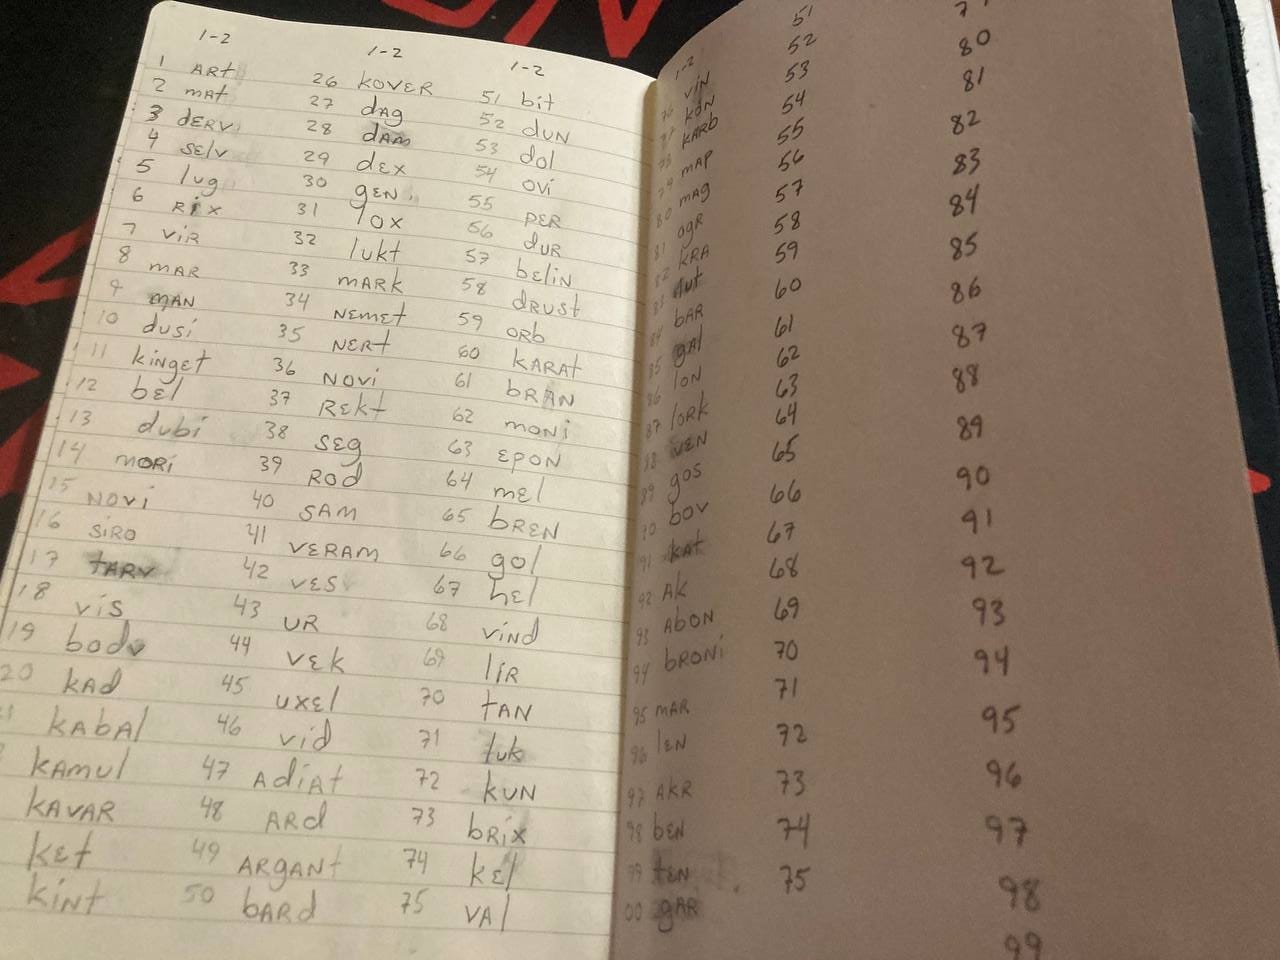 1-2
1 ARt
2 mAt
3 dERV
4 SElV
5 lug
6 RIX
7 VIR
8 mAR
9 mAN
10 dusi
11 kinget
12 bEl
13 dubi
14 mORi
15 NOVi
16 SiRO
17 tARV
18 Vis
19 bodv
20 kAd
1 kAbAl
kAmul
kAVAR
kEt
kiNt
1-2
26 kOVER
27 dAg
28 dAm
29 dEX
30 gEN
31 IOX
32 lukt
33 mARk
34 NEmEt
35 NERt
36 NOVi
37 REkt
38 SEg
39 ROd
40 SAM
41 VERAM
42 VES
43 UR
44 VEk
45 uXEl
46 Vid
47 AdiAt
48 ARd
49 ARgANt
50 bARd
1-2
51 bit
52 dUN
53 dol
54 oVi
55 PER
56 dUR
57 bEliN
58 dRUSt
59 ORb
60 KARAt
61 bRAN
62 mONi
63 EPON
64 mEl
65 bREN
66 gol
67 hEl
68 ViNd
69 liR
70 tAN
71 tuk
72 kUN
73 bRiX
74 kEl
75 VAl
1-2
76 ViN
77 kON
78 KARb
79 mAP
80 mAg
81 OgR
82 KRA
83
84 bAR
85 gAl
86 lON
87 lORk
88 VEN
89 gos
90 bOV
91 kAt
92 Ak
93 AbON
94 bRONi
95 mAR
96 lEN
97 AkR
98 bEN
99 tEN
00 gAR
51
52
53
54
55
56
57
58
59
60
61
62
63
64
65
66
67
68
69
70
71
72
73
74
75
80
81
82
83
84
85
86
87
88
89
90
91
92
93
94
95
96
97
98
99